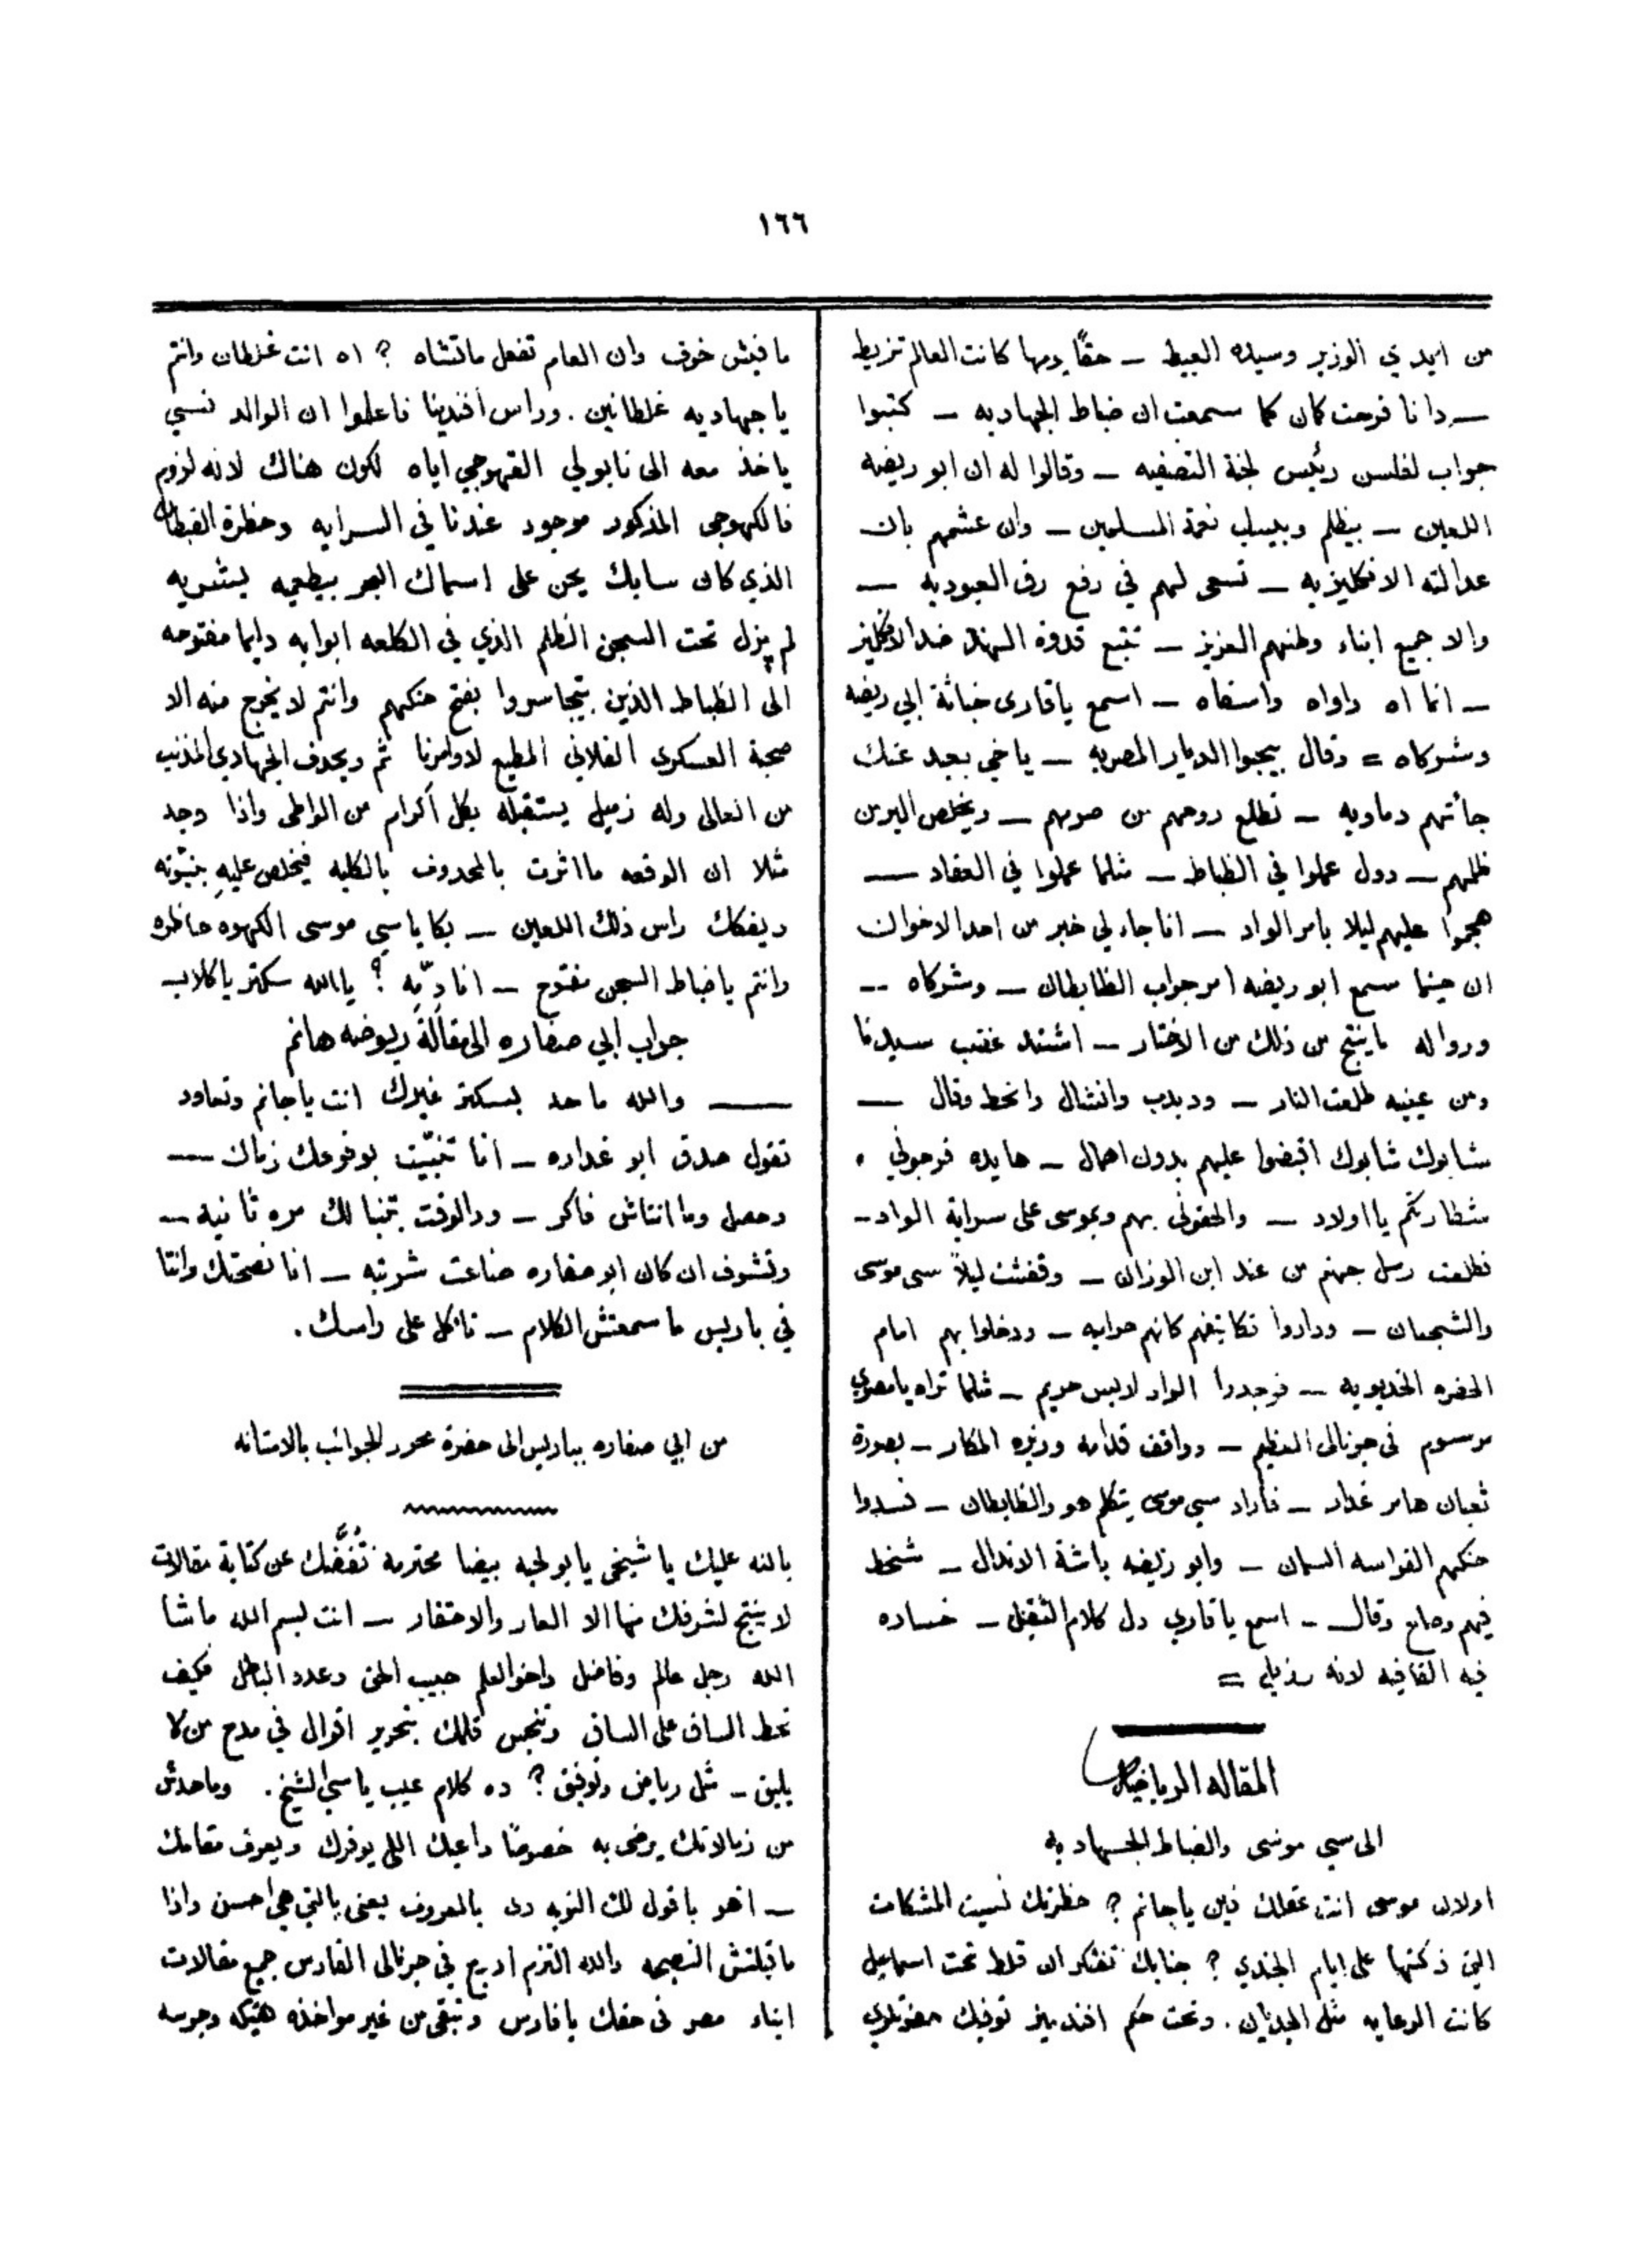 ١٦٦
من ايدي الوزير وسيده العبيط ــ حقًا يومها كانت العالم تزيط
ــ وانا فرحت كمان كما سمعت ان ضباط الجهاديه ــ كتبوا
جواب لفلسن رئيس لجنة التصفيه ــ وقالوا له ان ابو ريضه
اللعين ــ بيظلم وبيسلب نعمة المسلمين ــ وان عشمهم بان
عدالته الانكليزيه ــ تسعى لهم في رفع رق العبوديه ــ
والا جميع ابناء وطنهم العزيز ــ تتبع قدوة الهند ضد الانكليز
ــ انما اه واواه واسفاه ــ اسمع ياقارى خباثة ابي ريضه
وشركاه = وقال بيحبوا الديار المصريه ــ ياخي بعيد عنك
جاتهم دماويه ــ تطلع روحهم من صوبهم ــ ويخلص البر من
ظلمهم ــ دول عملوا في الظباط ــ مثلما عملوا في العقاد ــ
هجموا عليهم ليلا بامر الواد ــ انا جاء لي خبر من احد الاخوان
ان حينما سمع ابو ريضه امر جواب الظابطان ــ وشركاه ــ
ورواله ماينتج من ذلك من الاخبار ــ اشتد غضب سيدنا
ومن عينيه طلعت النار ــ ودبدب وانشال وانحط وقال ــ
شابوك شابوك اقبضوا عليهم بدون اهمال ــ هايده فرجوني .
شطارتكم يا اولاد ــ والحقوني بهم وبموسى على سراية الواد ــ
فطلعت رسل جهنم من عند ابن الوزان ــ وقفشت ليلاً سى موسى
والشجعان ــ وداروا تكاتيفهم كانهم حراميه ــ ودخلوا بهم امام
الحضره الخديويه ــ فوجدوا الواد لابس حريم ــ مثلما تراه يامصري
مرسوم في جرنالى العظيم ــ وواقف قدامه وزيره المكار ــ بصورة
ثعبان هامر غدار ــ فاراد سي موسى يتكلم هو والظابطان ــ فسدوا
حنكهم القواسه السمان ــ وابو ريضه باشة الاندال ــ شخط
فيهم وصاح وقال ــ اسمع ياقاري دل كلام الثقيل ــ خساره
فيه القافيه لانه رذيل =
المقاله الرياضيه
الى سي موسى والضباط الجهاديه
اولان موسى انت عقلك فين ياجانم ؟ حظرتك نسيت المشكلات
التي ذكتها على ايام الجندي ؟ جنابك تفتكر ان قلط تحت اسماعيل
كانت الرعايه مثل الجديان . وتحت حكم افنديمز توفيك
مافيش خوف وان العام تفعل ماتشاه ؟ اه انت غلطان وانتم
ياجهاديه غلطانين . وراس افندينا فاعلموا ان الوالد نسي
ياخذ معه الى نابولي القهوجي اياه لكون هناك لانه لزوم
فالكهوجى المذكور موجود عندنا في السرايه وحظرة القبطان
الذي كان سابك يحن على اسماك البحر بيطعميه بشويه
لم يزل تحت السجن الظلم الذي في الكلعه ابوابه دايما مفتوحه
الى الظباط الذين يتجاسروا بفتح حنكهم وانتم لا يخرج منه الا
صحبة العسكرى الفلاني المطيع لاوامرنا ثم ويحدف الجهادي المذنب
من العالى وله زميل يستقبله بكل اكرام من الواطى واذا وجد
مثلا ان الوقعه مااثرت بالمحدوف بالكليه فيخلص عليه
ويفكك راس ذلك اللعين ــ بكا ياسي موسى الكهوه حاظره
وانتم ياضباط السجن مفتوح ــ انا ديّه ؟ ياالله سكتر ياكلاب
جواب ابي صفاره الى مقالة ريوضه هانم
ــ والله ماحد بسكتر غيرك انت ياجانم وتعاود
تقول صدق ابو غداره ــ انا تنبيّت بوقوعك زمان ــ
وحصل وما انتاش فاكر ــ ودالوقت بتنبا لك مره ثانيه ــ
وتشوف ان كان ابو صفاره ضاعت شورته ــ انا نصحتك وانتا
في باريس ما سمعتش الكلام ــ تاكل على راسك .
من ابي صفاره بباريس الى حضرة محرر الجوائب بالاستانه
بالله عليك يا شيخى يابو لحيه بيضا محترمه تفضّك عن كتابة مقالات
لا ينتج لشرفك منها الا العار والاحتقار ــ انت بسم الله ماشا
الله رجل عالم وفاضل واخو العلم حبيب الحق وعدو الباطل فكيف
تحط الساق على الساق وتنجس قلمك بتحرير اقوال في مدح من لا
يليق ــ مثل رياض وتوفيق ؟ ده كلام عيب ياسي الشيخ . وماحدش
من زمالاتك يرضى به خصوصًا داعيك اللي يوقرك ويعرف مقامك
ــ اهو باقول لك النوبه دى بالمعروف يعنى بالتي هي احسن واذا
ماقبلتش النصيحه والله التزم ادرج في جرنالى القادم جميع مقالات
ابناء مصر في حقك يافارس وتبقى من غير مواخذه هتيكه وجرسه